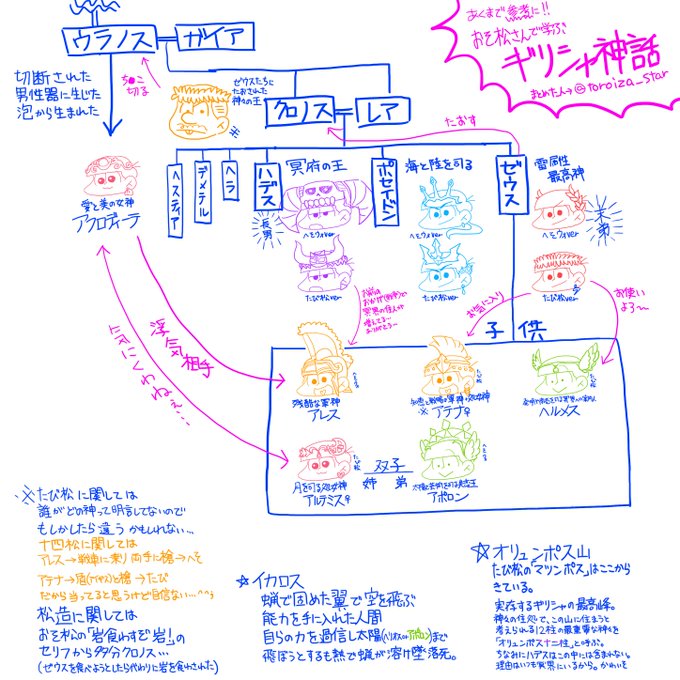 あくまで参考に!!
おそ松さんで学ぶ
ギリシャ神話
まとめた人→@toroiza_star
ウラノス
ガイア
切断された
男性器に生じた
泡から生まれた
ち●こ
切る
ゼウスたちに
たおされた
神々の王
クロノス
レア
たおす
ヘスティア
デメテル
ヘラ
ハデス
冥府の王
長男
へそウォver
たび松ver
ポセイドン
海と陸を司る
へそウォver
たび松ver
ゼウス
雷属性
最高神
末弟
へそウォver
たび松ver
愛と美の女神
アフロディーテ
浮気相手
気にくわねぇ…
お気に入り
お使い
よろ〜
子供
残酷な軍神
アレス
※アテナ♀
たび松
ヘルメス
たび松
月を司る処女神
アルテミス♀
双子
姉 弟
アポロン
※たび松に関しては
誰がどの神って明言してないので
もしかしたら違うかもしれない…
十四松に関しては
アレス→戦車に乗り両手に槍→へそ
アテナ→盾(アイギス)と槍→たび
だから当ってると思うけど自信ない…^^;
松造に関しては
おそ松の「岩食わすぞ岩!」の
セリフから多分クロノス…
(ゼウスを食べようとしたら代わりに岩を食わされた)
☆イカロス
蝋で固めた翼で空を飛ぶ
能力を手に入れた人間
自らの力を過信し太陽(ヘリオスorアポロン)まで
飛ぼうとするも熱で蝋が溶け墜落死。
☆オリュンポス山
たび松の「マツンポス」はここから
きている。
実存するギリシャの最高峰。
神々の住処で、この山に住まうと
考えられる12柱の最重要な神々を
「オリュンポス十二柱」と呼ぶ。
ちなみにハデスはこの中には含まれない。
理由はいつも冥界にいるから。かわいそ